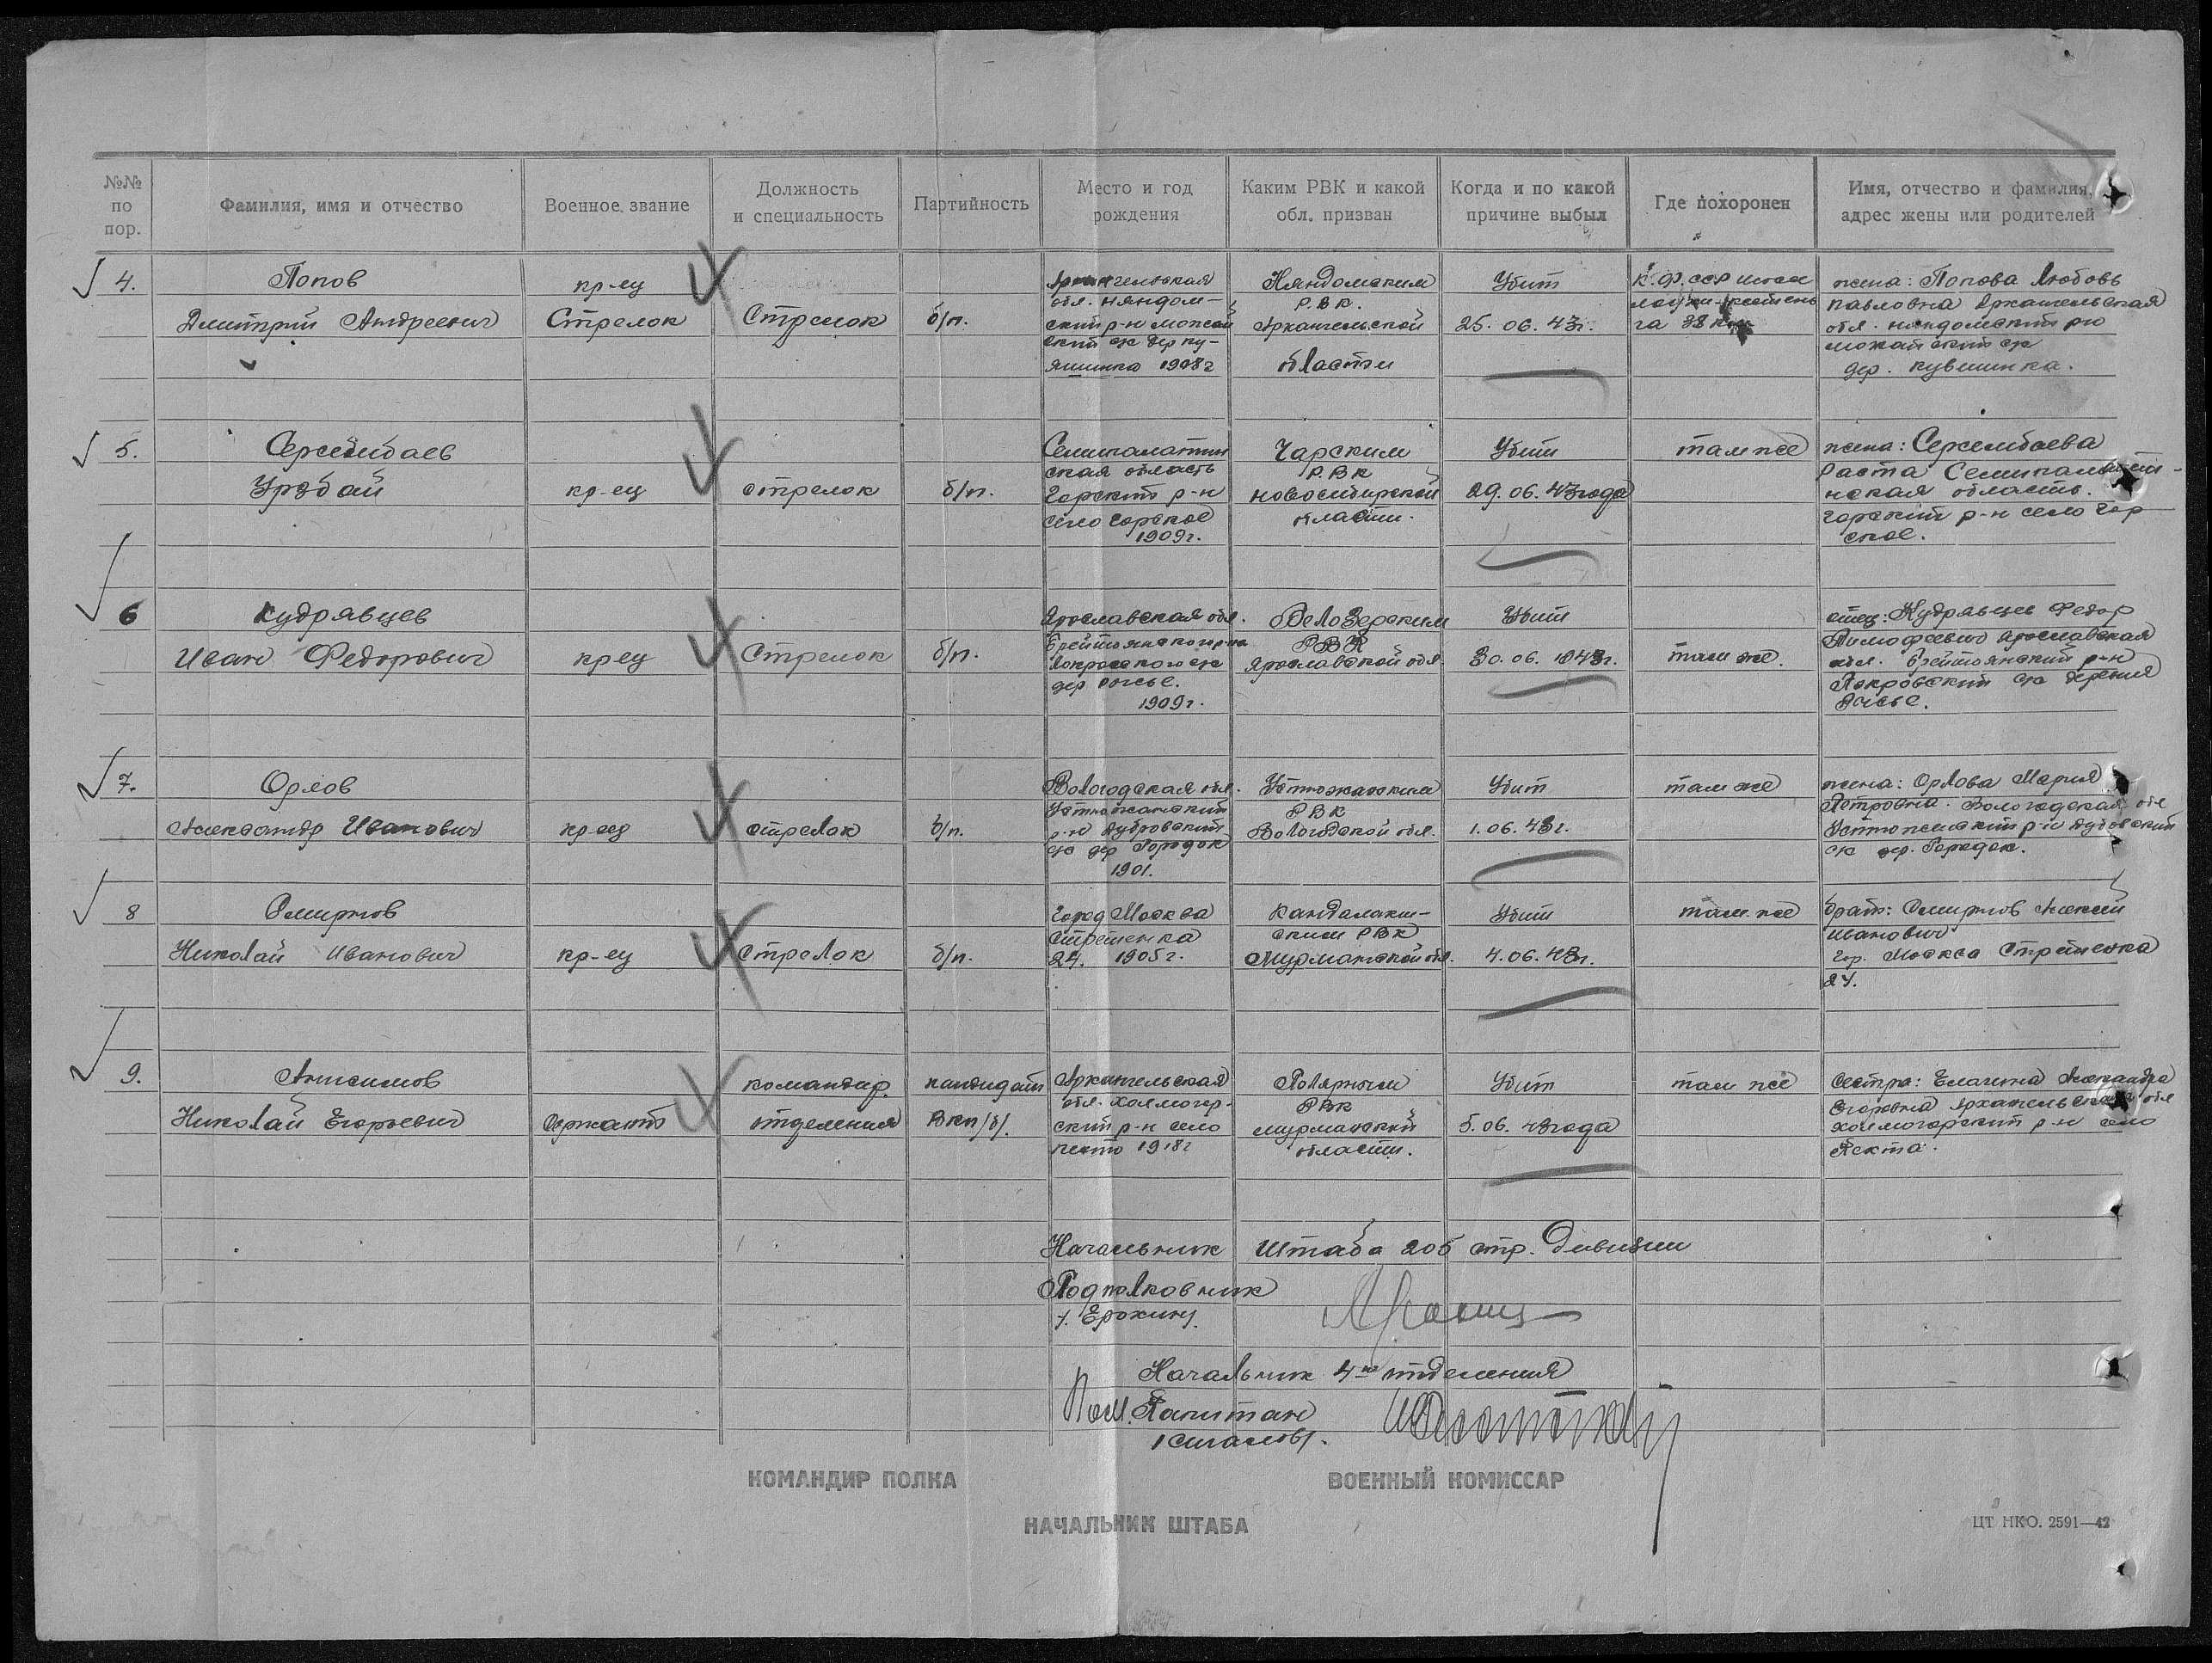 №№ по пор.
Фамилия, имя и отчество
Военное звание
Должность и специальность
Партийность
Место и год рождения
Каким РВК и какой обл. призван
Когда и по какой причине выбыл
Где похоронен
Имя, отчество и фамилия, адрес жены или родителей
4.
Попов
Дмитрий Андреевич
кр-ец
Стрелок
Стрелок
б/п.
Архангельская
обл. няндом-
ский р-н можай
ский с/с дер ку-
1908г
Няндомским
Р.В.К.
Архангельской
области
Убит
25. 06. 43г.
К.Ф.ССР
38 км
жена: Попова Любовь
Павловна Архангельская
обл. няндомский р-н
можайский с/с
дер. кувшинка.
5.
Сержембаев
Урэбай
кр-ец
стрелок
б/п.
Семипалатин
ская область
Чарский р-н
село Чарское
1909г.
Чарским
Р.В.К
новосибирской
области.
Убит
29. 06. 43 года
там же
жена: Сержембаева
Раста Семипалати-
нская область.
Чарский р-н село Чар
ское.
6
Кудрявцев
Иван Федорович
кр ец
Стрелок
б/п.
Ярославская обл.
Брейтовского р-на
Покровского с/с
дер
1909г.
Белозерским
РВК
Ярославской обл.
Убит
30. 06. 1943г.
там же.
отец: Кудрявцев Федор
Тимофеевич Ярославская
обл. Брейтовский р-н
Покровский с/с деревня
7.
Орлов
Александр Иванович
кр-ец
стрелок
б/п.
Вологодская обл.
Устюжанский
р-н Дубровский
с/с дер Городок
1901.
Устюжанским
РВК
Вологодской обл.
Убит
1. 06. 43г.
там же
жена: Орлова Мария
Петровна. Вологодская обл
Устюженский р-н
с/с дер. Городок.
8
Смирнов
Николай Иванович
кр-ец
Стрелок
б/п.
Город Москва
Стретенка
24. 1905г.
Кандалакш-
ским РВК
Мурманской обл.
Убит
4. 06. 43г.
там же
брат: Смирнов Алексей
Иванович
гор. Москва Стретенка
24.
9.
Анисимов
Николай Егорьевич
Сержант
командир
отделения
кандидат
ВКП/б/.
Архангельская
обл. Холмогор-
ский р-н село
1918г
Полярным
РВК
Мурманской
области.
Убит
5. 06. 43 года
там же
Сестра: Елагина Александра
Егоровна Архангельская обл
Холмогорский р-н село
Начальник Штаба 205 стр. Дивизии
Подполковник
/. Ерохин/.
Начальник 4го отделения
Пом. Капитан
КОМАНДИР ПОЛКА
ВОЕННЫЙ КОМИССАР
НАЧАЛЬНИК ШТАБА
ЦТ НКО. 2591—42